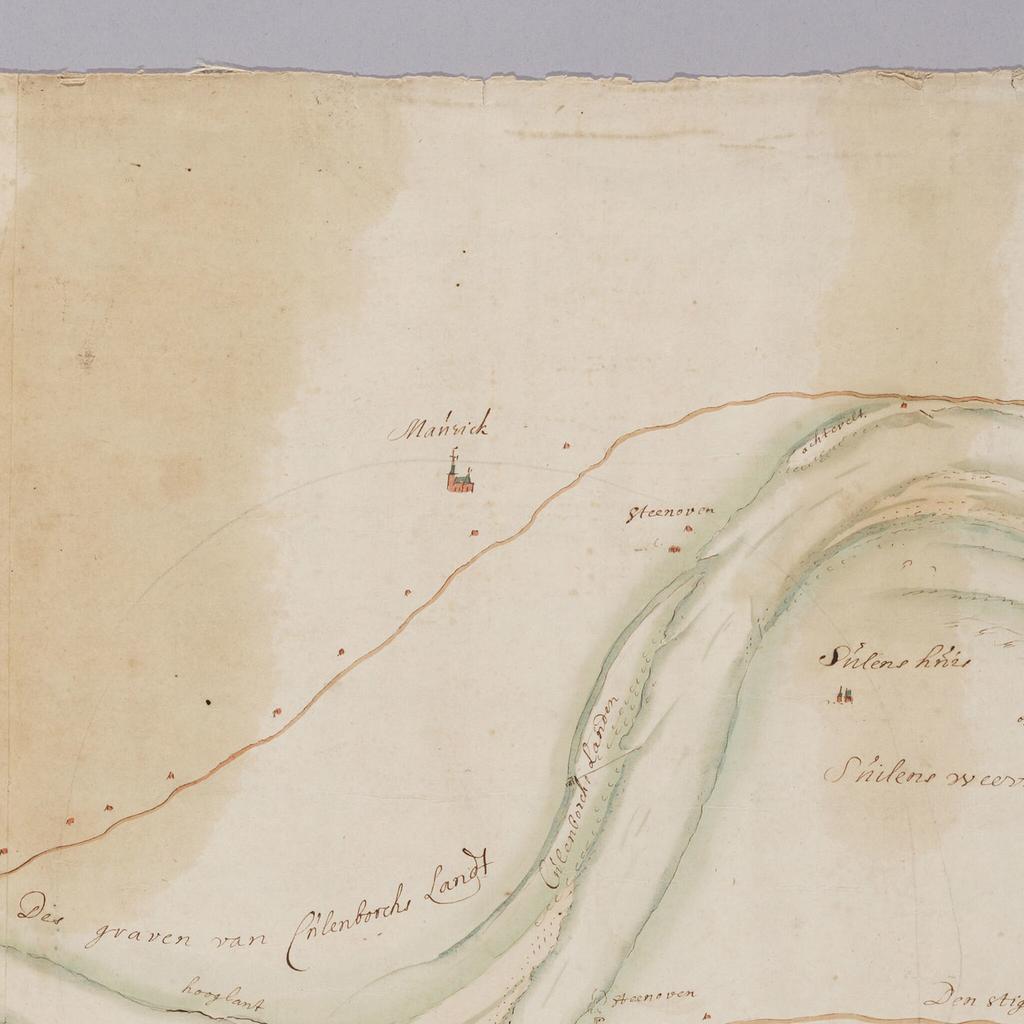 Maurick
achtevelt
Steenoven
Sulens huis
Suilens weer
Culenborchs Landen
Des graven van Culenborchs Landt
hooglant
Steenoven
Den stig